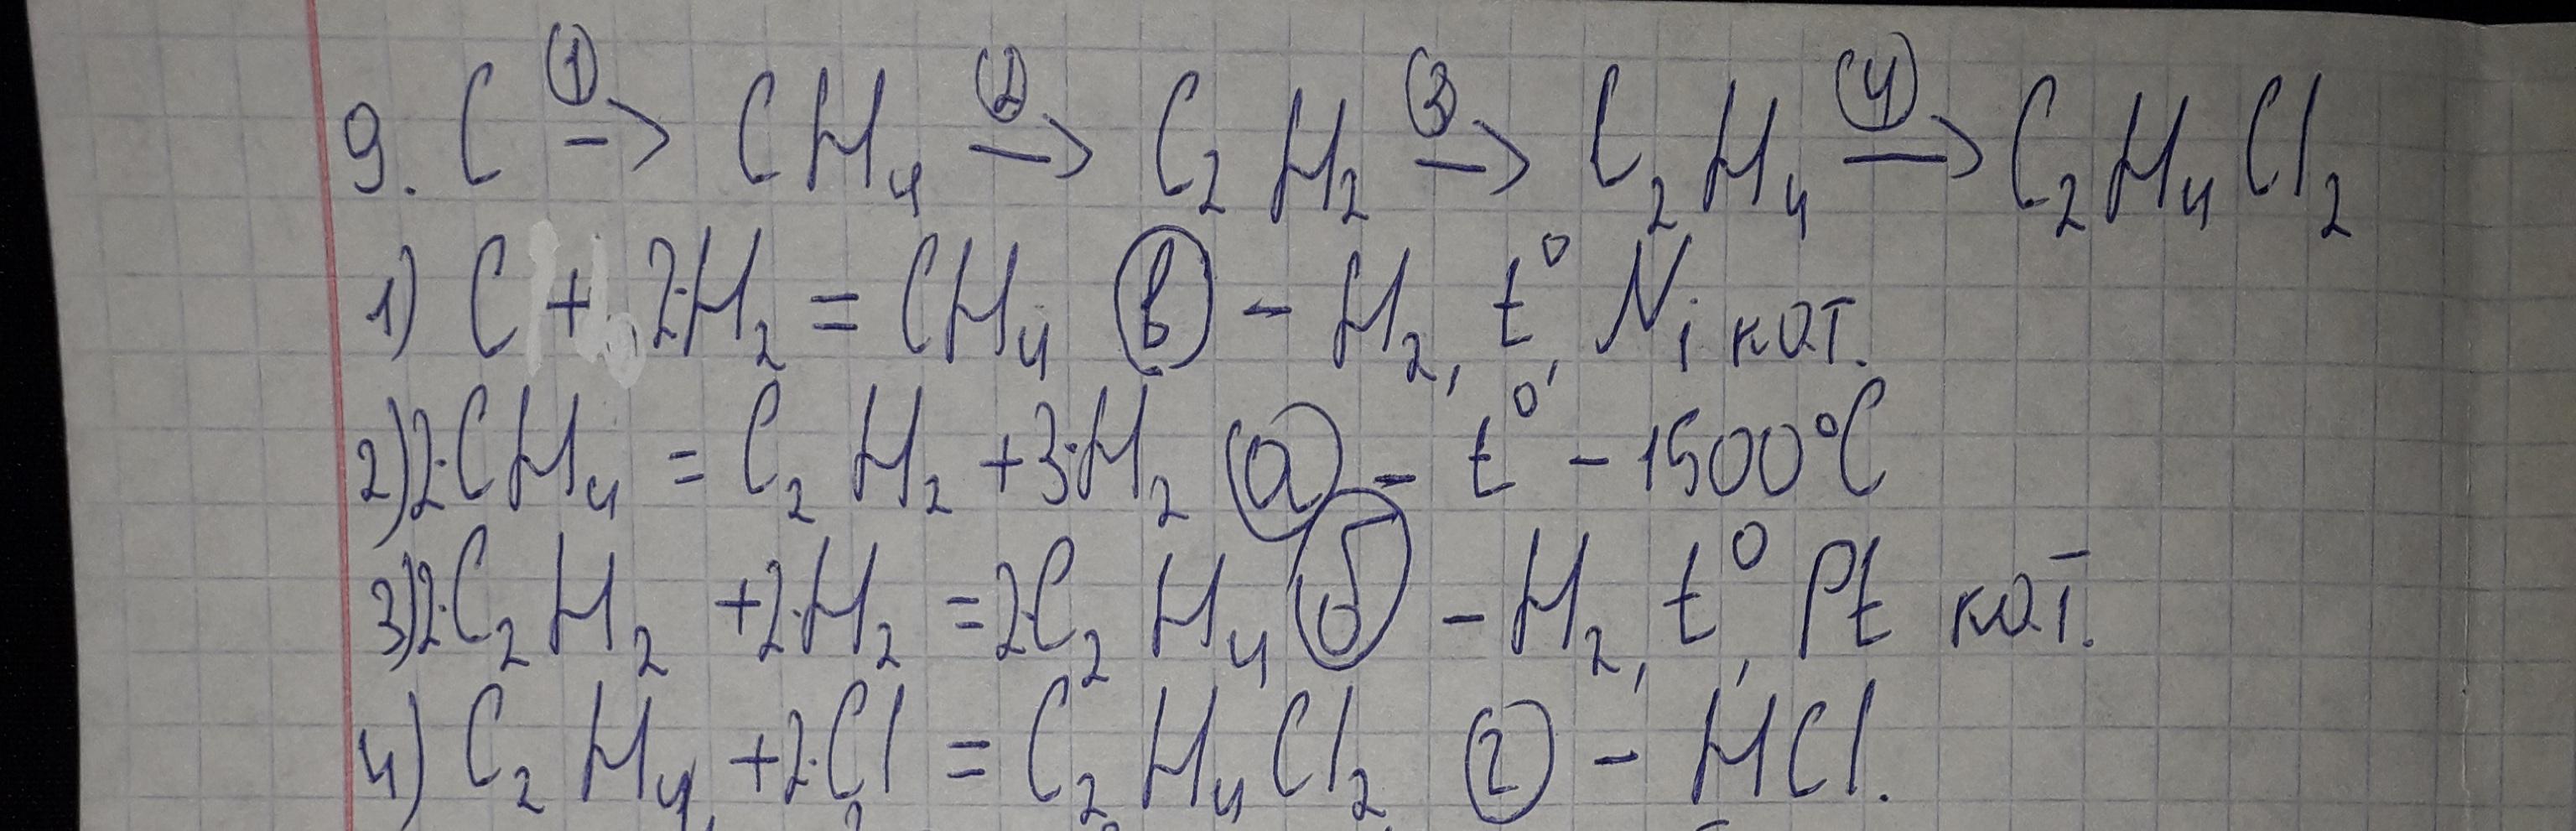 9. C ①→ CH₄ ②→ C₂H₂ ③→ C₂H₄ ④→ C₂H₄Cl₂
1) C + 2·H₂ = CH₄ (в) – H₂, t°, Ni кат.
2) 2·CH₄ = C₂H₂ + 3·H₂ (а) – t° – 1500°C
3) 2·C₂H₂ + 2·H₂ = 2·C₂H₄ (б) – H₂, t°, Pt кат.
4) C₂H₄ + 2·Cl = C₂H₄Cl₂ (г) – HCl.